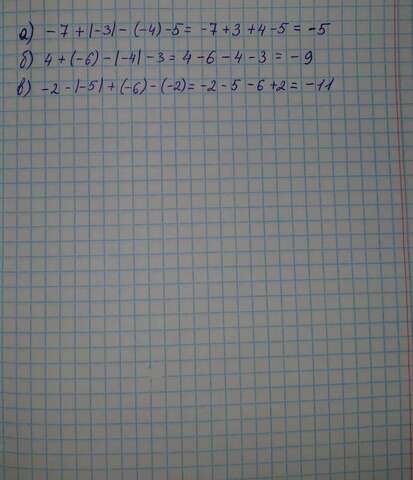 а) -7 + |-3| - (-4) -5 = -7 + 3 + 4 - 5 = -5
б) 4 + (-6) - |-4| - 3 = 4 - 6 - 4 - 3 = -9
в) -2 - |-5| + (-6) - (-2) = -2 - 5 - 6 + 2 = -11